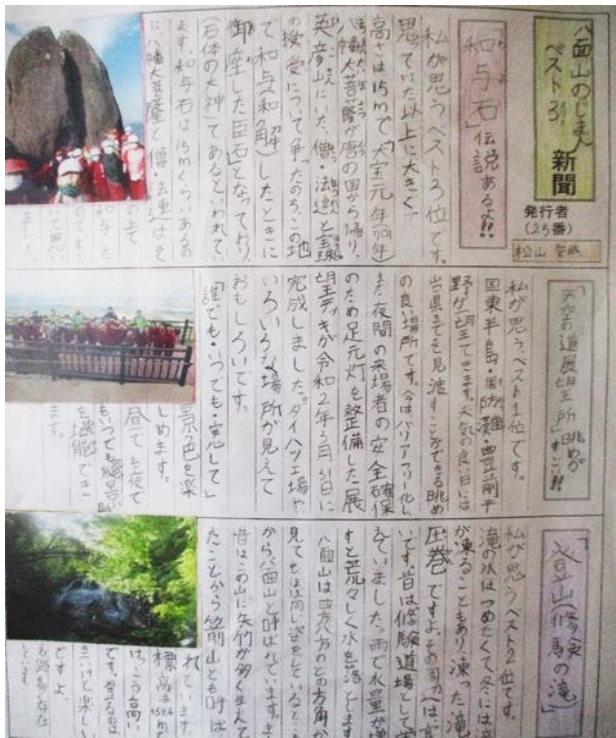 八面山のじまん
ベスト3
新聞
発行者
(25番)
松山
「和与石」伝説あるよ!!
私が思うベスト3位です。
思っていた以上に大きく、
高さは15mで「大宝元年(701年
八幡大菩薩が唐の国から帰り、
英彦山にいた、僧・法蓮と宝珠
の授受について争ったのち、この地
で和与(和解)したときに
御座した巨石」となっており、
(石体の大神)であるといわれてい
ます。和与石は15mくらいあるの
に八幡大菩薩と僧・法蓮はそ
の上で
和与した
いと思い
ました。
「天空の道展望所」眺めが
すごい!!
私が思うベスト1位です。
国東半島・周防灘・豊前平
野が一望できます。天気の良い日には
山口県までを見渡すことができる眺め
の良い場所です。今はバリアフリー化し、
また夜間の来場者の安全確保
のため足元灯を整備した展
望デッキが令和2年3月31日に
完成しました。ダイハツ工場や
いろいろな場所が見えて
おもしろいです。
「誰でも・いつでも・安心して」
景色を楽
しめます。
昼でも夜で
もいつでも絶景
を堪能でき
ます。
「登山(修験の滝)」
私が思うベスト2位です。
滝の水はつめたくて、冬には滝
が凍ることもあり、凍った滝は
圧巻ですよ。その
いです。昔は修験道場として
えていました。雨で水量が増
すと荒々しく水を落とします
八面山は四方八方のどの方角か
見てもほぼ同じ姿をしていると
から八面山と呼ばれています。ま
昔はこの山に矢竹が多く生えて
たことから箭山とも呼ば
れています。
標高は659.4m
けっこう高い
です。登るのは
きついけど楽しい
ですよ。